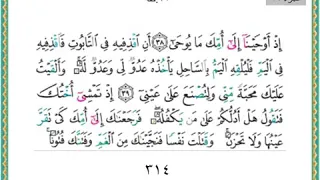 إِذْ أَوْحَيْنَآ إِلَىٰٓ أُمِّكَ مَا يُوحَىٰٓ ﴿٣٨﴾ أَنِ ٱقْذِفِيهِ فِى ٱلتَّابُوتِ فَٱقْذِفِيهِ
فِى ٱلْيَمِّ فَلْيُلْقِهِ ٱلْيَمُّ بِٱلسَّاحِلِ يَأْخُذْهُ عَدُوٌّ لِّى وَعَدُوٌّ لَّهُۥ ۚ وَأَلْقَيْتُ
عَلَيْكَ مَحَبَّةً مِّنِّى وَلِتُصْنَعَ عَلَىٰ عَيْنِىٓ ﴿٣٩﴾ إِذْ تَمْشِىٓ أُخْتُكَ
فَتَقُولُ هَلْ أَدُلُّكُمْ عَلَىٰ مَن يَكْفُلُهُۥ ۖ فَرَجَعْنَـٰكَ إِلَىٰٓ أُمِّكَ كَىْ تَقَرَّ
عَيْنُهَا وَلَا تَحْزَنَ ۚ وَقَتَلْتَ نَفْسًا فَنَجَّيْنَـٰكَ مِنَ ٱلْغَمِّ وَفَتَنَّـٰكَ فُتُونًا ۚ
٣١٤